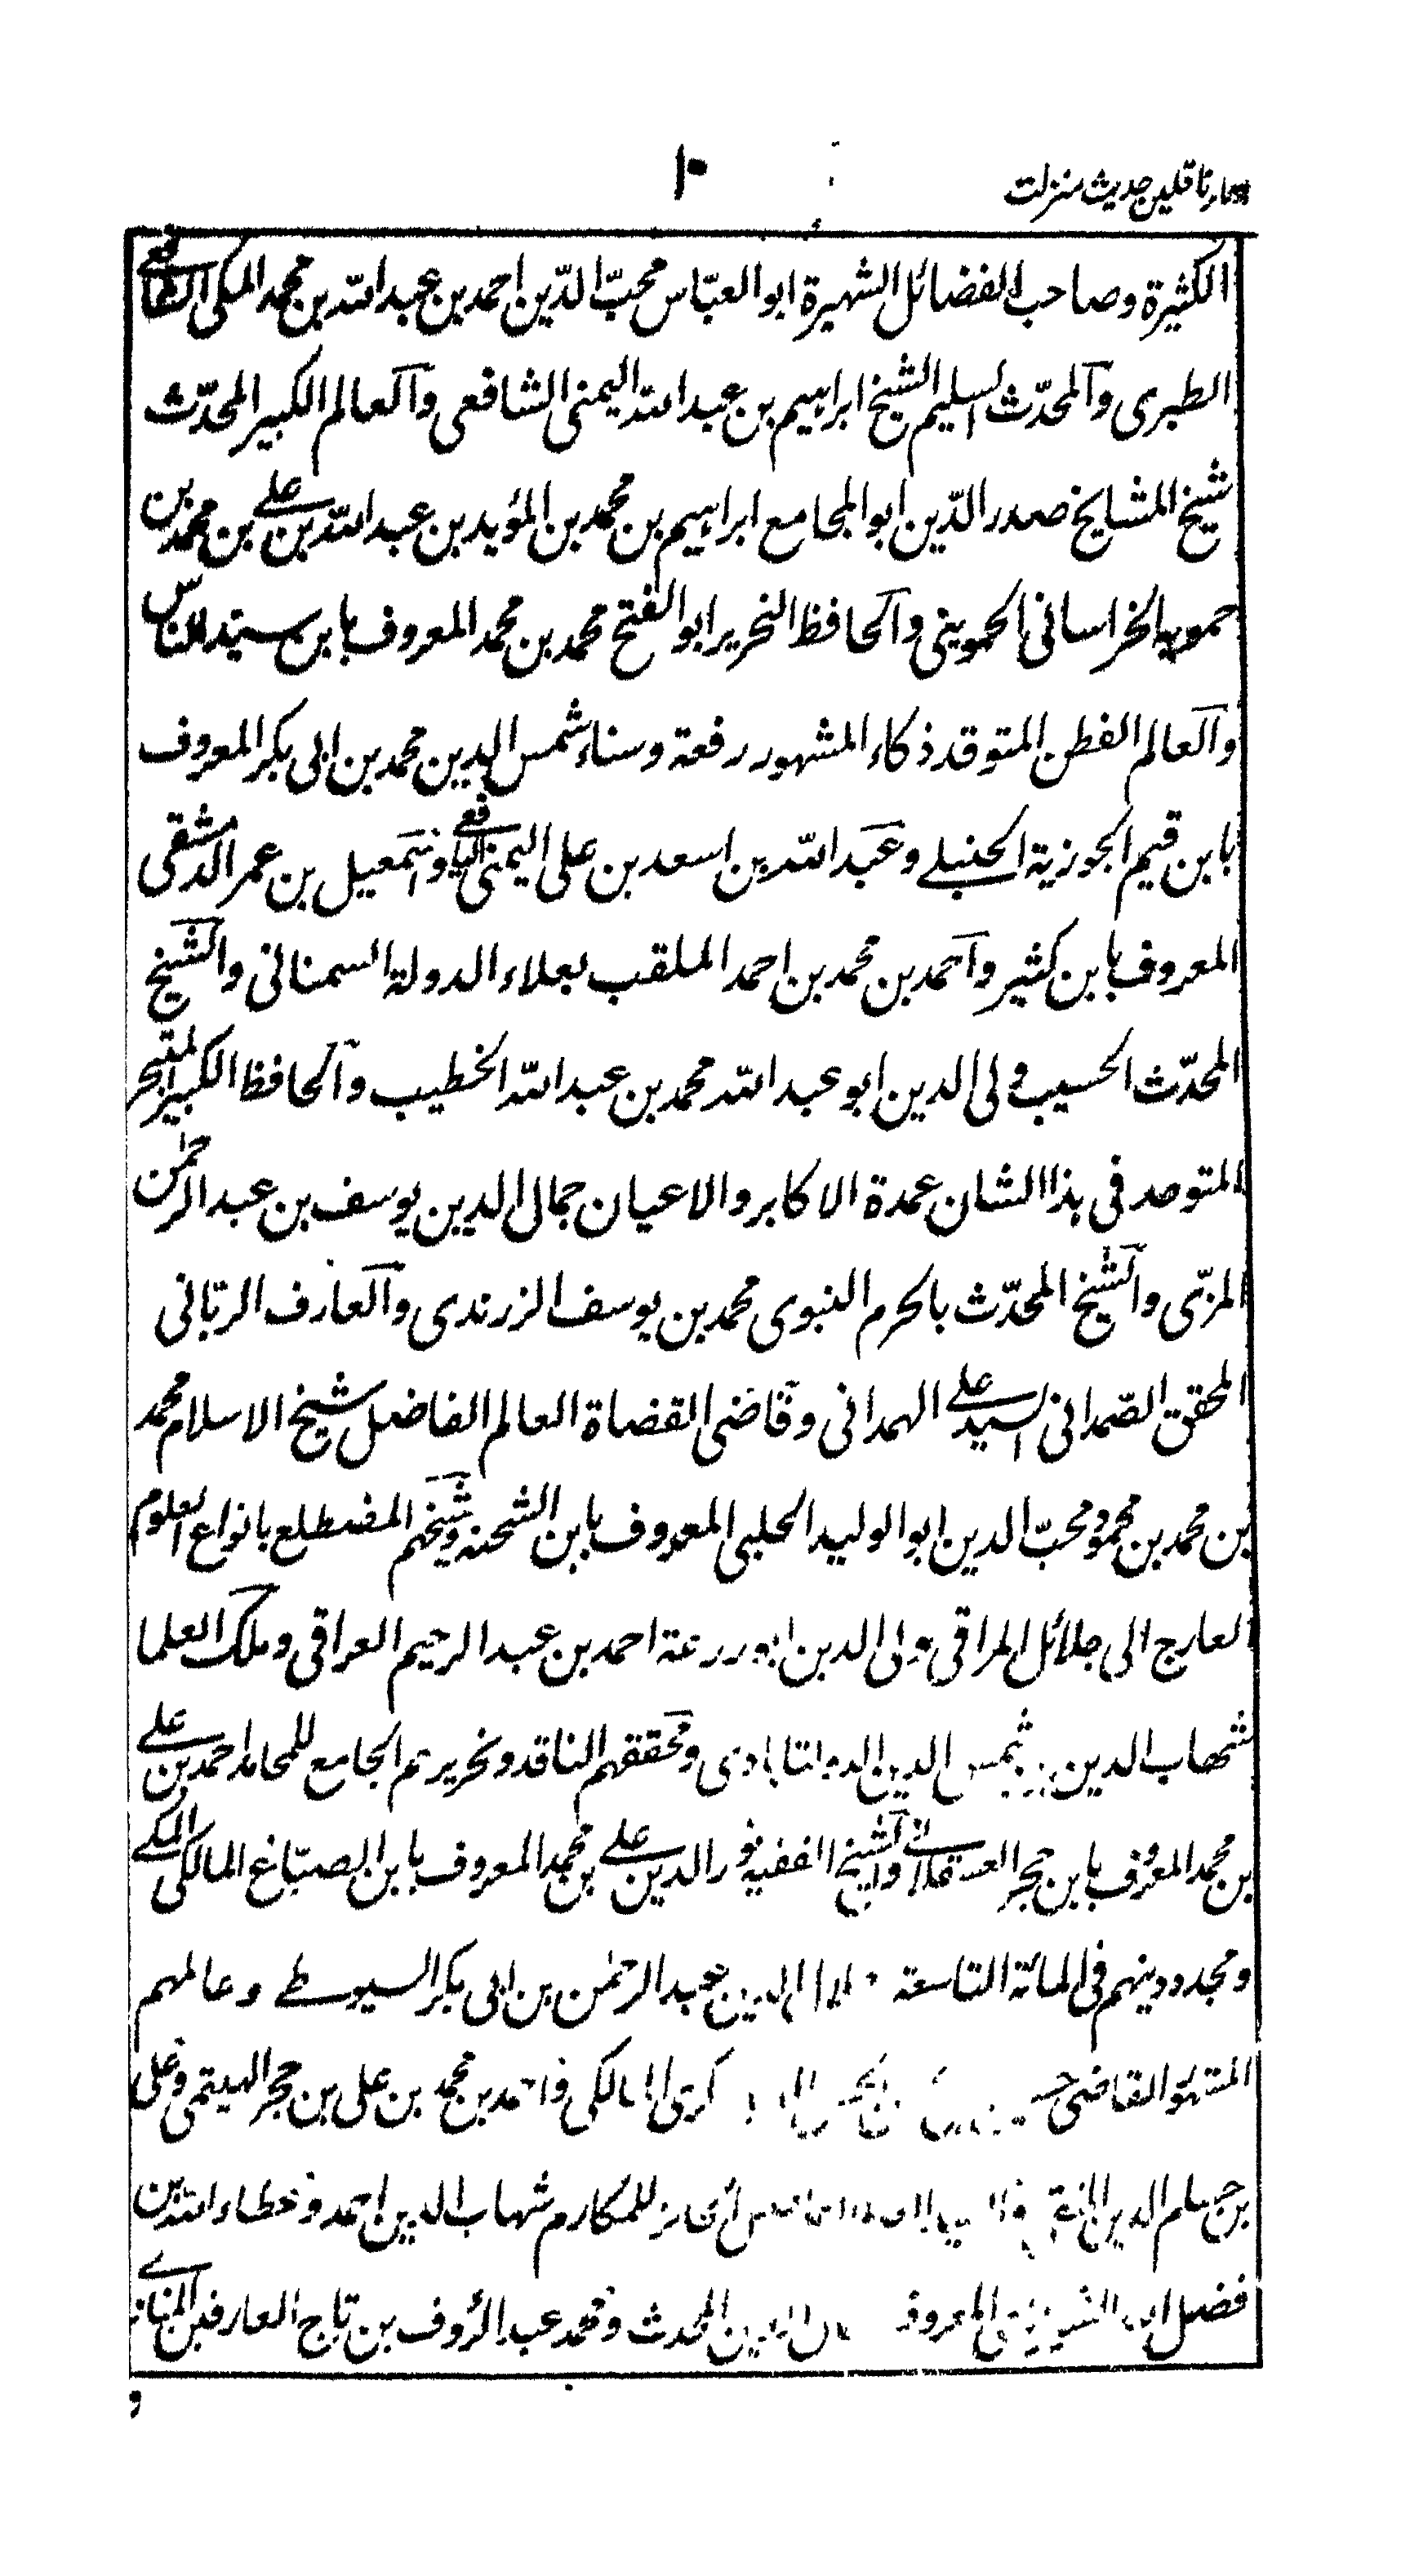 اسماء ناقلين حديث منزلت
۱۰
الكثيرة وصاحب الفضائل الشهيرة ابو العبّاس محبّ الدّين احمد بن عبد الله بن محمد المكى الشافعى
الطبرى والمحدّث السليم الشيخ ابراهيم بن عبد الله اليمنى الشافعى والعالم الكبير المحدّث
شيخ المشايخ صدر الدّين ابو المجامع ابراهيم بن محمد بن المؤيد بن عبد الله بن على بن محمد بن
حمويه الخراسانى الحموينى والحافظ النحرير ابو الفتح محمد بن محمد المعروف بابن سيّد الناس
والعالم الفطن المتوقد ذكاء المشهور رفعة وسناء شمس الدين محمد بن ابى بكر المعروف
بابن قيم الجوزية الحنبلے وعبد الله بن اسعد بن على اليمنى اليافعے واسمعيل بن عمر الدمشقى
المعروف بابن كثير واحمد بن محمد بن احمد الملقب بعلاء الدولة السمنانى والشيخ
المحدّث الحسيب ولى الدين ابو عبد الله محمد بن عبد الله الخطيب والحافظ الكبير المتبحر
المتوحد فى هذا الشان عمدة الاكابر والاعيان جمال الدين يوسف بن عبد الرحمٰن
المزّى والشيخ المحدّث بالحرم النبوى محمد بن يوسف الزرندى والعارف الربّانى
المحقق الصّمدانى السيد علے الهمدانى وقاضى القضاة العالم الفاضل شيخ الاسلام محمد
بن محمد بن محمود محبّ الدين ابو الوليد الحلبى المعروف بابن الشحنه وشيخهم المضطلع بانواع العلوم
العارج الى جلائل المراقى ولى الدين ابو زرعة احمد بن عبد الرحيم العراقى وملك العلما
شهاب الدين بن شمس الدين الدولتابادى ومحققهم الناقد ونحريرهم الجامع للمحامد احمد بن علے
بن محمد المعروف بابن حجر العسقلانے والشيخ الفقيه نور الدين علے بن محمد المعروف بابن الصبّاغ المالكى المكے
ومجدد دينهم فى المائة التاسعة الدين عبد الرحمٰن بن ابى بكر السيوطے وعالمهم
القاضى حسين بكرى المالكى واحمد بن محمد بن على بن حجر الهيتمى وعلى
بن حسام الدين المتقى للمكارم شهاب الدين احمد وعطاء الله بن
فضل الله الشيرازى المعروف الدين المحدث ومحمد عبد الرؤف بن تاج العارفين المناوے
و